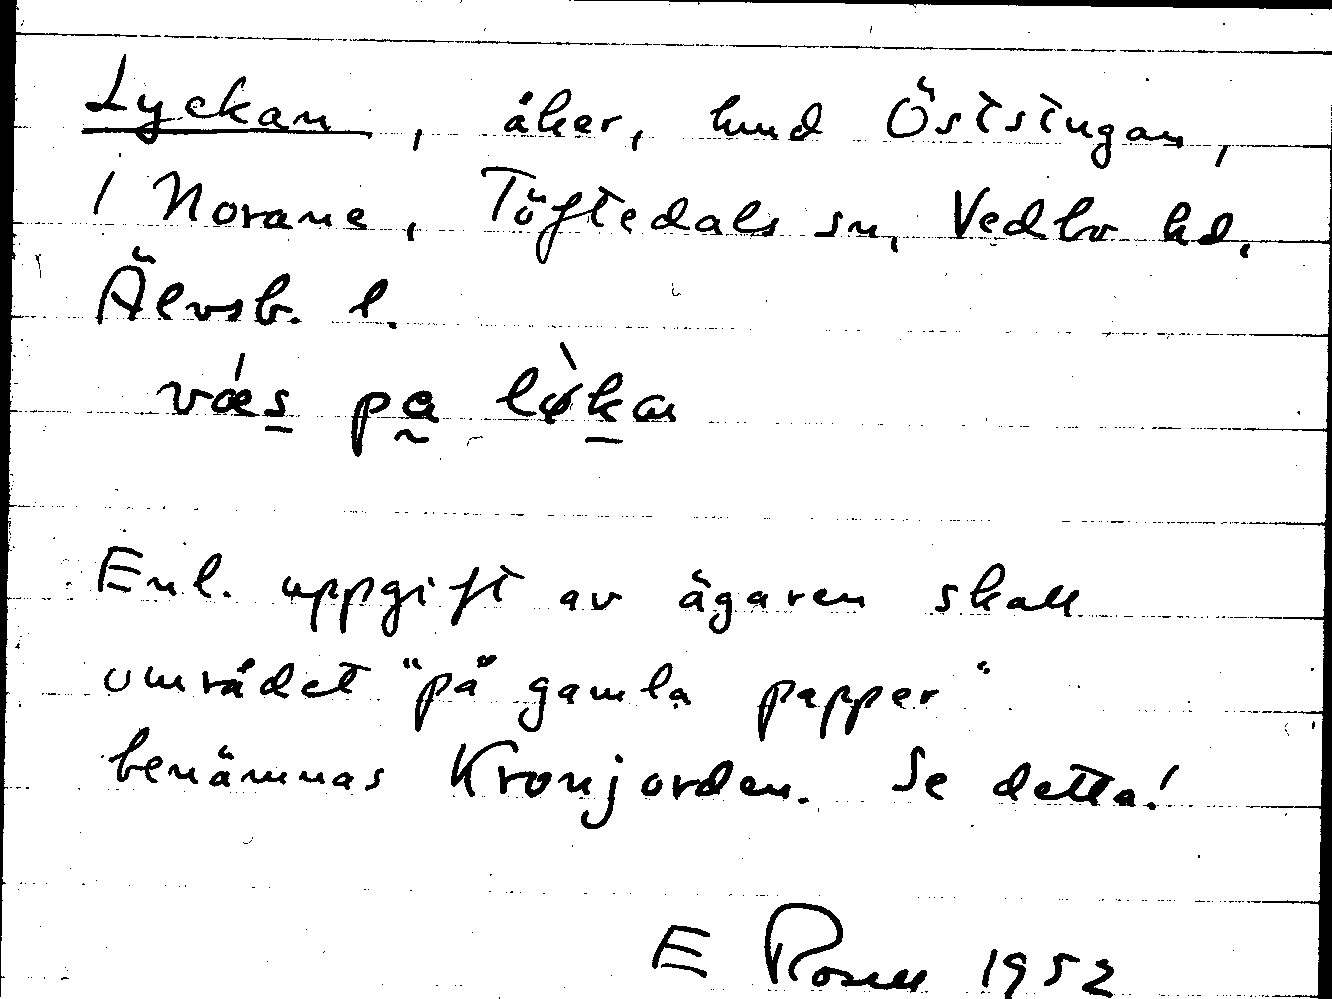 Lyckan, åker, hmd Öststugan,
1 Norane, Töftedals sn, Vedbo hd.
Älvsb. l.
væ´s pa lø`kan
Enl. uppgift av ägaren skall
området "på gamla papper"
benämnas Kronjorden. Se detta!
E Rosell 1952